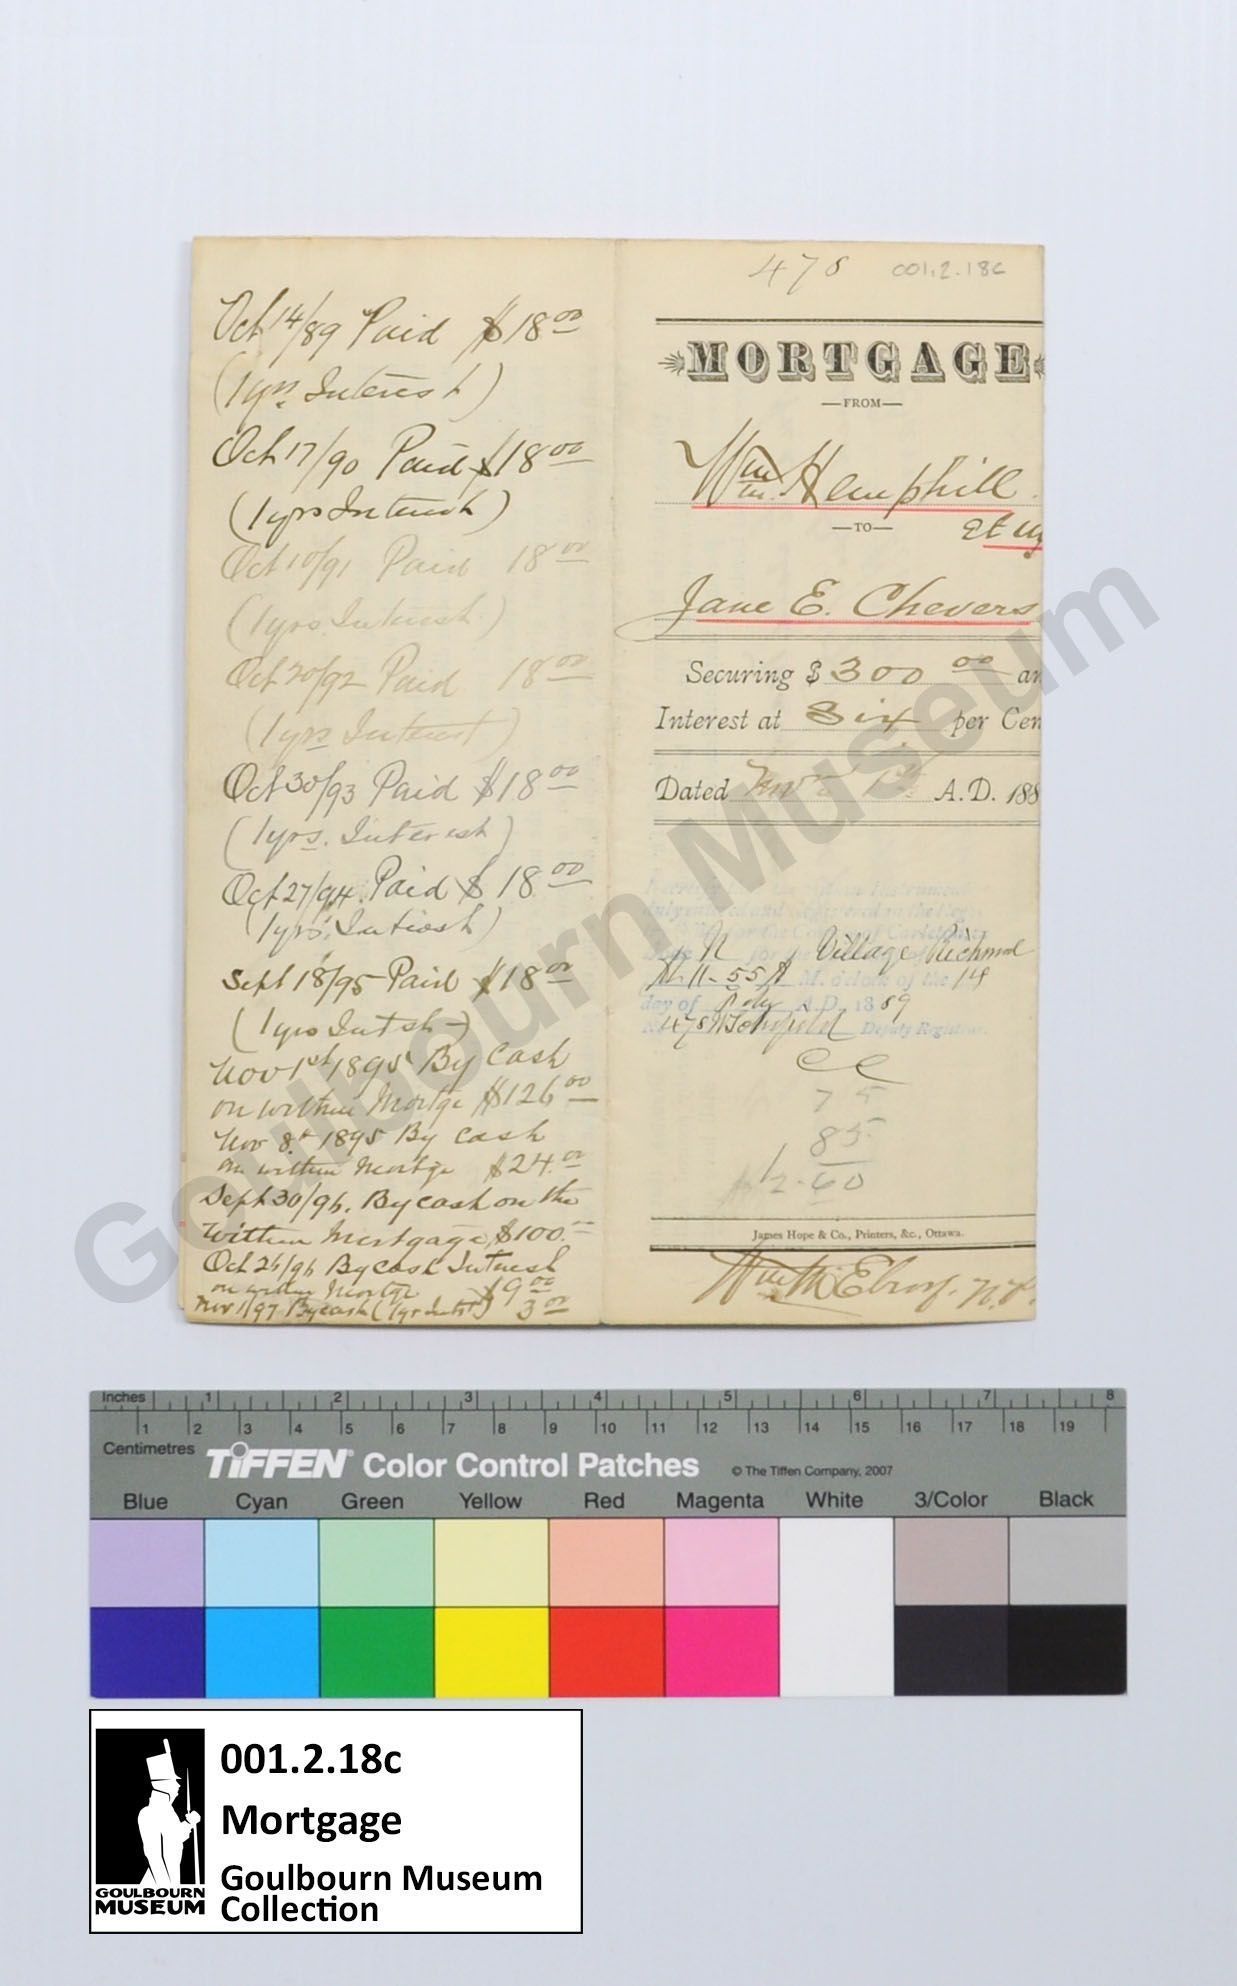 Oct 14/89 Paid $18 00
(1 yrs. Interest)
Oct 17/90 Paid $18 00
(1 yrs Interest)
Oct 10/91 Paid 18 00
(1 yrs Interest)
Oct 20/92 Paid 18 00
(1 yrs Interest)
Oct 30/93 Paid $18 00
(1 yrs. Interest)
Oct 27/94 Paid $ 18 00
(1 yrs. Interest)
Sept 18/95 Paid $18 00
(1 yrs Intst)
Nov 1st 1895 By Cash
on within Mortge $126 00
Nov 8th 1895 By Cash
on within Mortge $24 00
Sept 30/96. By cash on the
Within Mortgage, $100.
Oct 26/96 By cash Interest
on within Mortge $9 00
Nov 1/97 By cash (1 yr Intst) 3 00
478 001.2.18c
MORTGAGE
—FROM—
Wm. Hemphill
—TO—
et
Jane E. Chevers
Securing $ 300 00 an
Interest at Six per Cen
Dated Nov A.D. 188
Instrument
duly entered and Registered in the
for the County of Carleton
N for the Village Richmond
At 11-55 A M. o'clock of the 14
day of A.D. 1889
No 478 Deputy Registrar.
75
85
1.60
James Hope & Co., Printers, &c., Ottawa.
Wm McElroy. N.P.
Goulbourn Museum
Inches 1 2 3 4 5 6 7 8
1 2 3 4 5 6 7 8 9 10 11 12 13 14 15 16 17 18 19
Centimetres TIFFEN Color Control Patches © The Tiffen Company, 2007
Blue Cyan Green Yellow Red Magenta White 3/Color Black
001.2.18c
Mortgage
Goulbourn Museum
Collection
GOULBOURN
MUSEUM